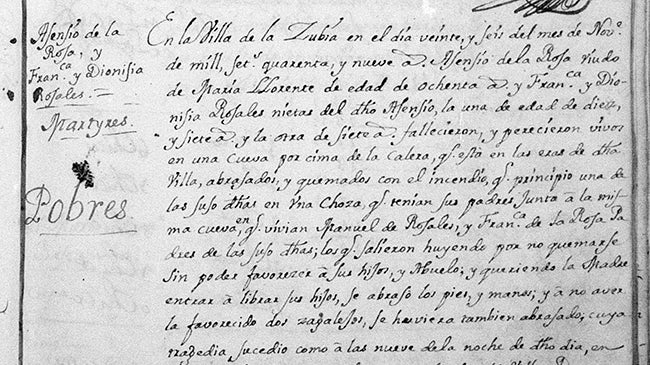 Asensio de la
Rosa, y
Fran.ca y Dionisia
Rosales.
Martyres.
Pobres
En la Villa de la Zubia en el dia veinte, y seis del mes de Nov.e
de mill, set.s quarenta, y nueve a.s Asensio de la Rosa viudo
de Maria Llorente de edad de ochenta a.s y Fran.ca y Dio-
nisia Rosales nietas del dho Asensio, la una de edad de diez,
y siete a.s y la otra de siete a.s fallecieron, y perecieron vivos
en una Cueva por cima de la Calera, q.e està en las eras de dha
Villa, abrasados, y quemados con el incendio, q.e principio una de
las suso dhas en vna Choza, q.e tenian sus padres, Junta à la mis-
ma cueva, en q.e vivian Manuel de Rosales, y Fran.ca de la Rosa Pa-
dres de las suso dhas; los q.e salieron huyendo por no quemarse
sin poder favorezer à sus hijos, y Abuelo; y queriendo la Madre
entrar à librar sus hijos, se abrasò los pies, y manos; y à no aver
la favorecido dos zagalejos, se huviera tambien abrasado; cuya
tragedia sucedio como à las nueve de la noche de dho dia, en